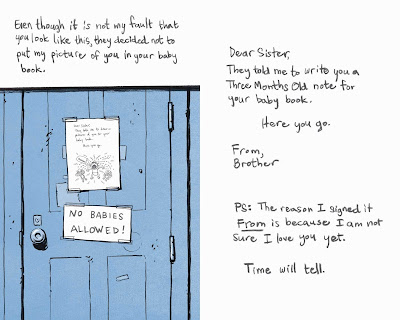 Even though it is not my fault that
you look like this, they decided not to
put my picture of you in your baby
book.
Dear Sister,
They told me to write you a
picture
for your
baby book.
Here you go.
NO BABIES
ALLOWED!
Dear Sister,
They told me to write you a
Three Months Old note for
your baby book.
Here you go.
From,
Brother
PS: The reason I signed it
From is because I am not
sure I love you yet.
Time will tell.